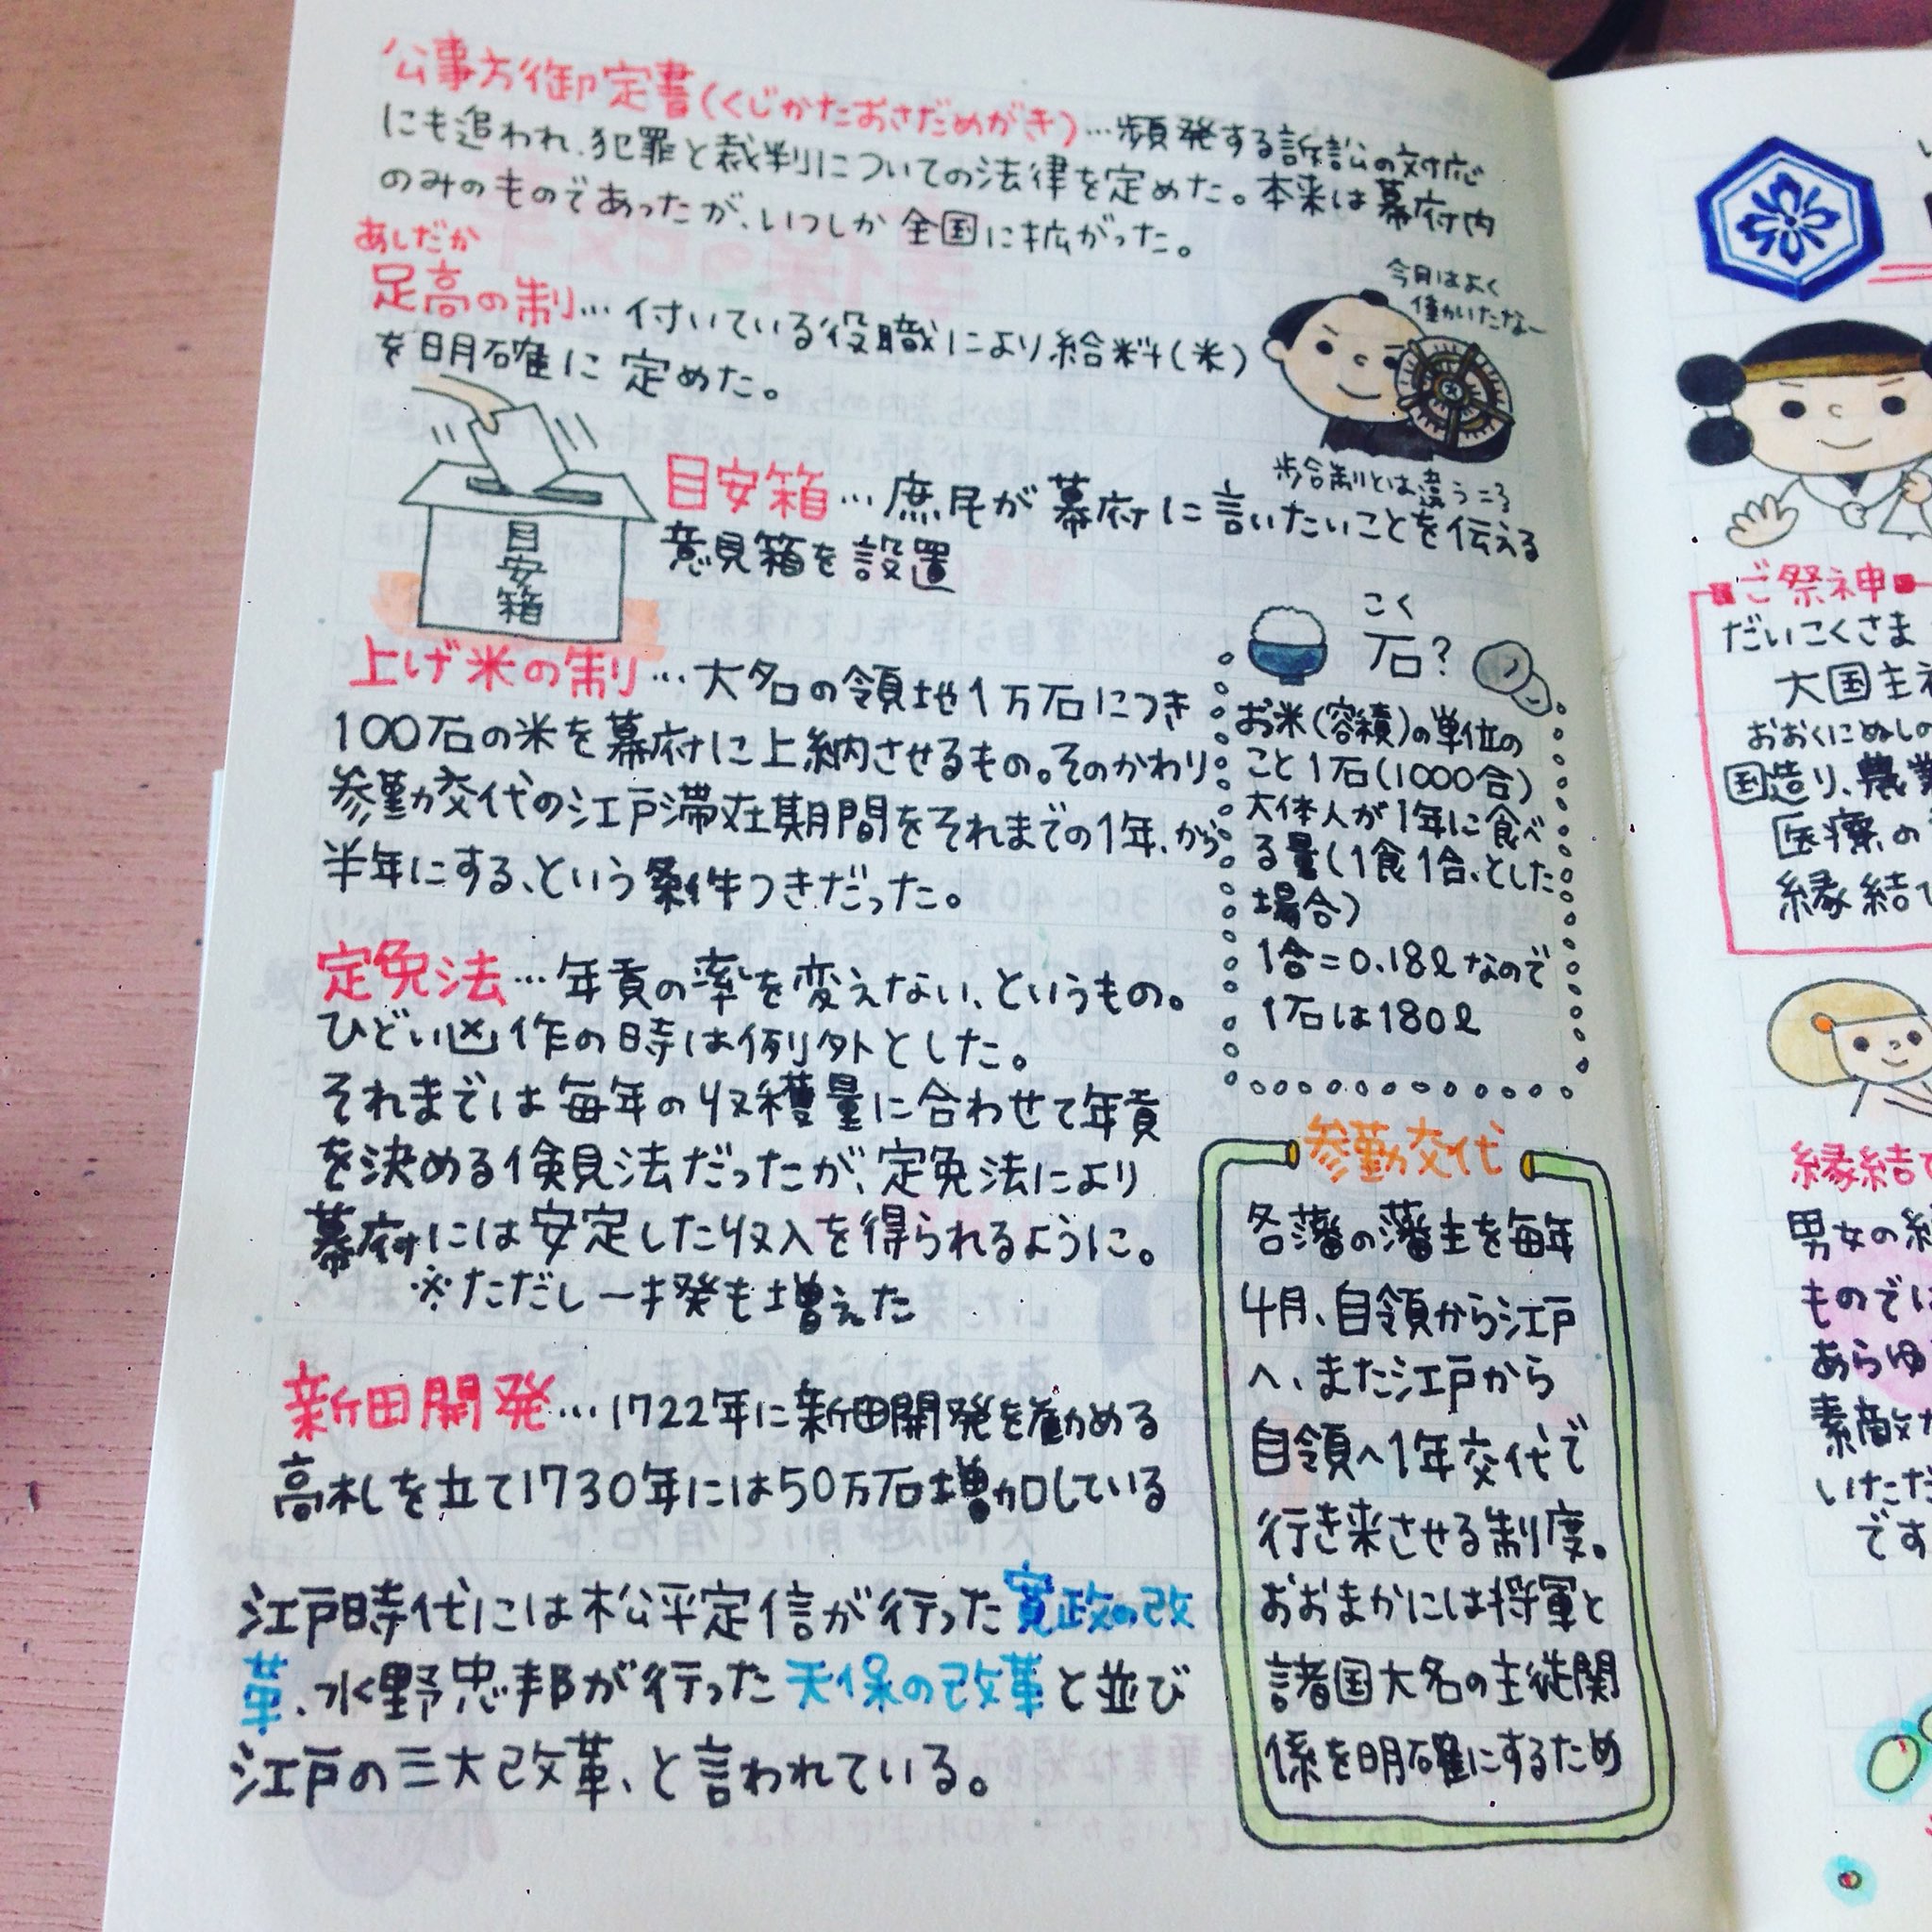 公事方御定書(くじかたおさだめがき)…頻発する訴訟の対応
にも追われ、犯罪と裁判についての法律を定めた。本来は幕府内
のみのものであったが、いつしか全国に拡がった。
あしだか
足高の制…付いている役職により給料(米)
を明確に定めた。
今月はよく
働かいたなー
歩合制とは違うころ
目安箱…庶民が幕府に言いたいことを伝える
意見箱を設置
目安箱
上げ米の制…大名の領地1万石につき
100石の米を幕府に上納させるもの。そのかわり
参勤交代の江戸滞在期間をそれまでの1年、から
半年にする、という条件つきだった。
こく
石?
お米(容積)の単位の
こと1石(1000合)
大体人が1年に食べ
る量(1食1合、とした
場合)
1合=0.18ℓなので
1石は180ℓ
定免法…年貢の率を変えない、というもの。
ひどい凶作の時は例外とした。
それまでは毎年の収穫量に合わせて年貢
を決める倹見法だったが、定免法により
幕府には安定した収入を得られるように。
※ただし一揆も増えた
新田開発…1722年に新田開発を勧める
高札を立て1730年には50万石増加している
江戸時代には松平定信が行った寛政の改
革、水野忠邦が行った天保の改革と並び
江戸の三大改革、と言われている。
参勤交代
各藩の藩主を毎年
4月、自領から江戸
へ、また江戸から
自領へ1年交代で
行き来させる制度。
おおまかには将軍と
諸国大名の主従関
係を明確にするため
ご祭神
だいこくさま
大国主
おおくにぬしの
国造り、農業
医療の
縁結び
縁結び
男女の
ものでは
あらゆ
素敵
いただ
です